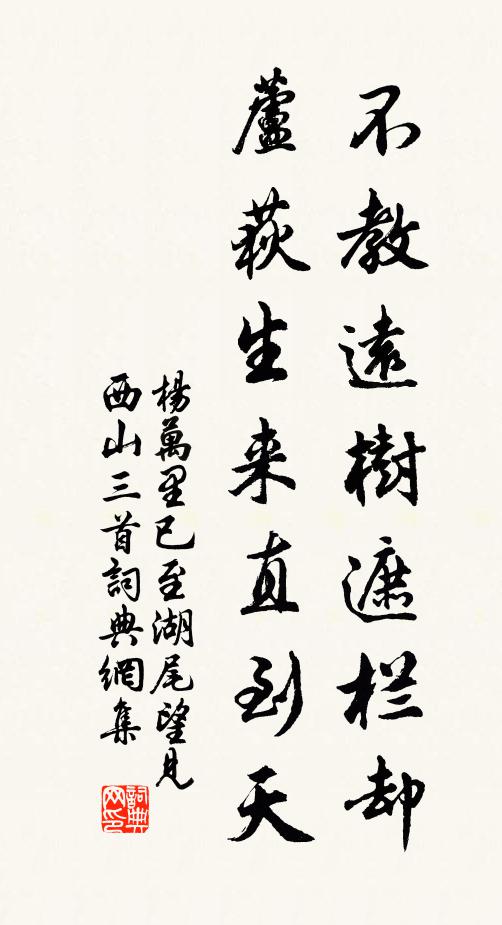 不教遠樹遮栏却
蘆荻生来直到天
楊萬里已至湖尾望見
西山三首詞典網集
詞典網印